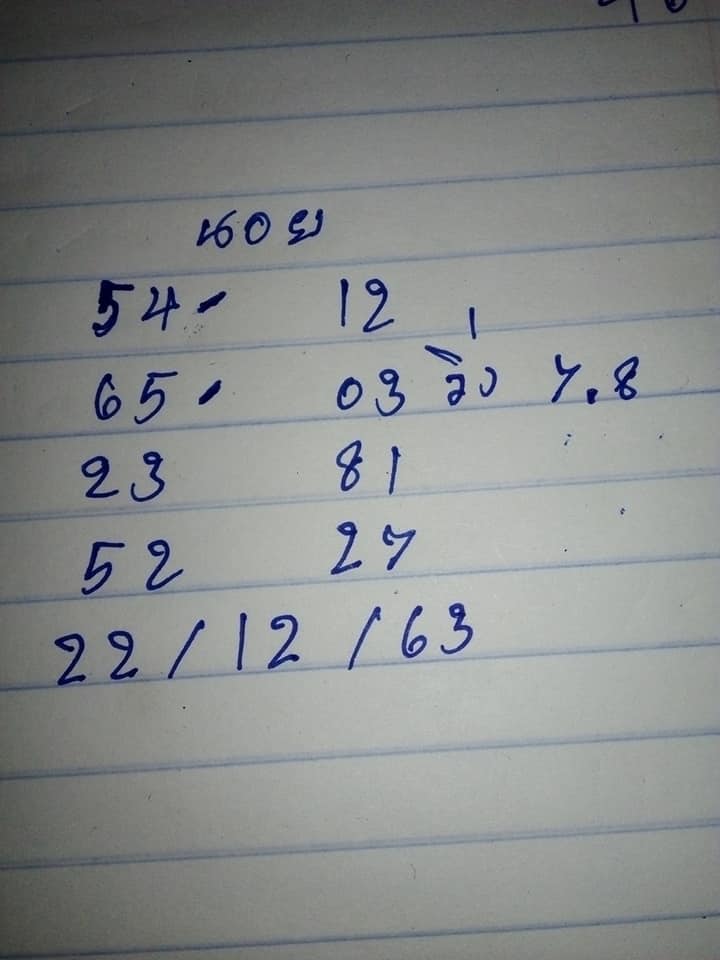 ฮอย
54 - 12
65 - 03 วิ่ง 7.8
23 81
52 27
22 / 12 / 63